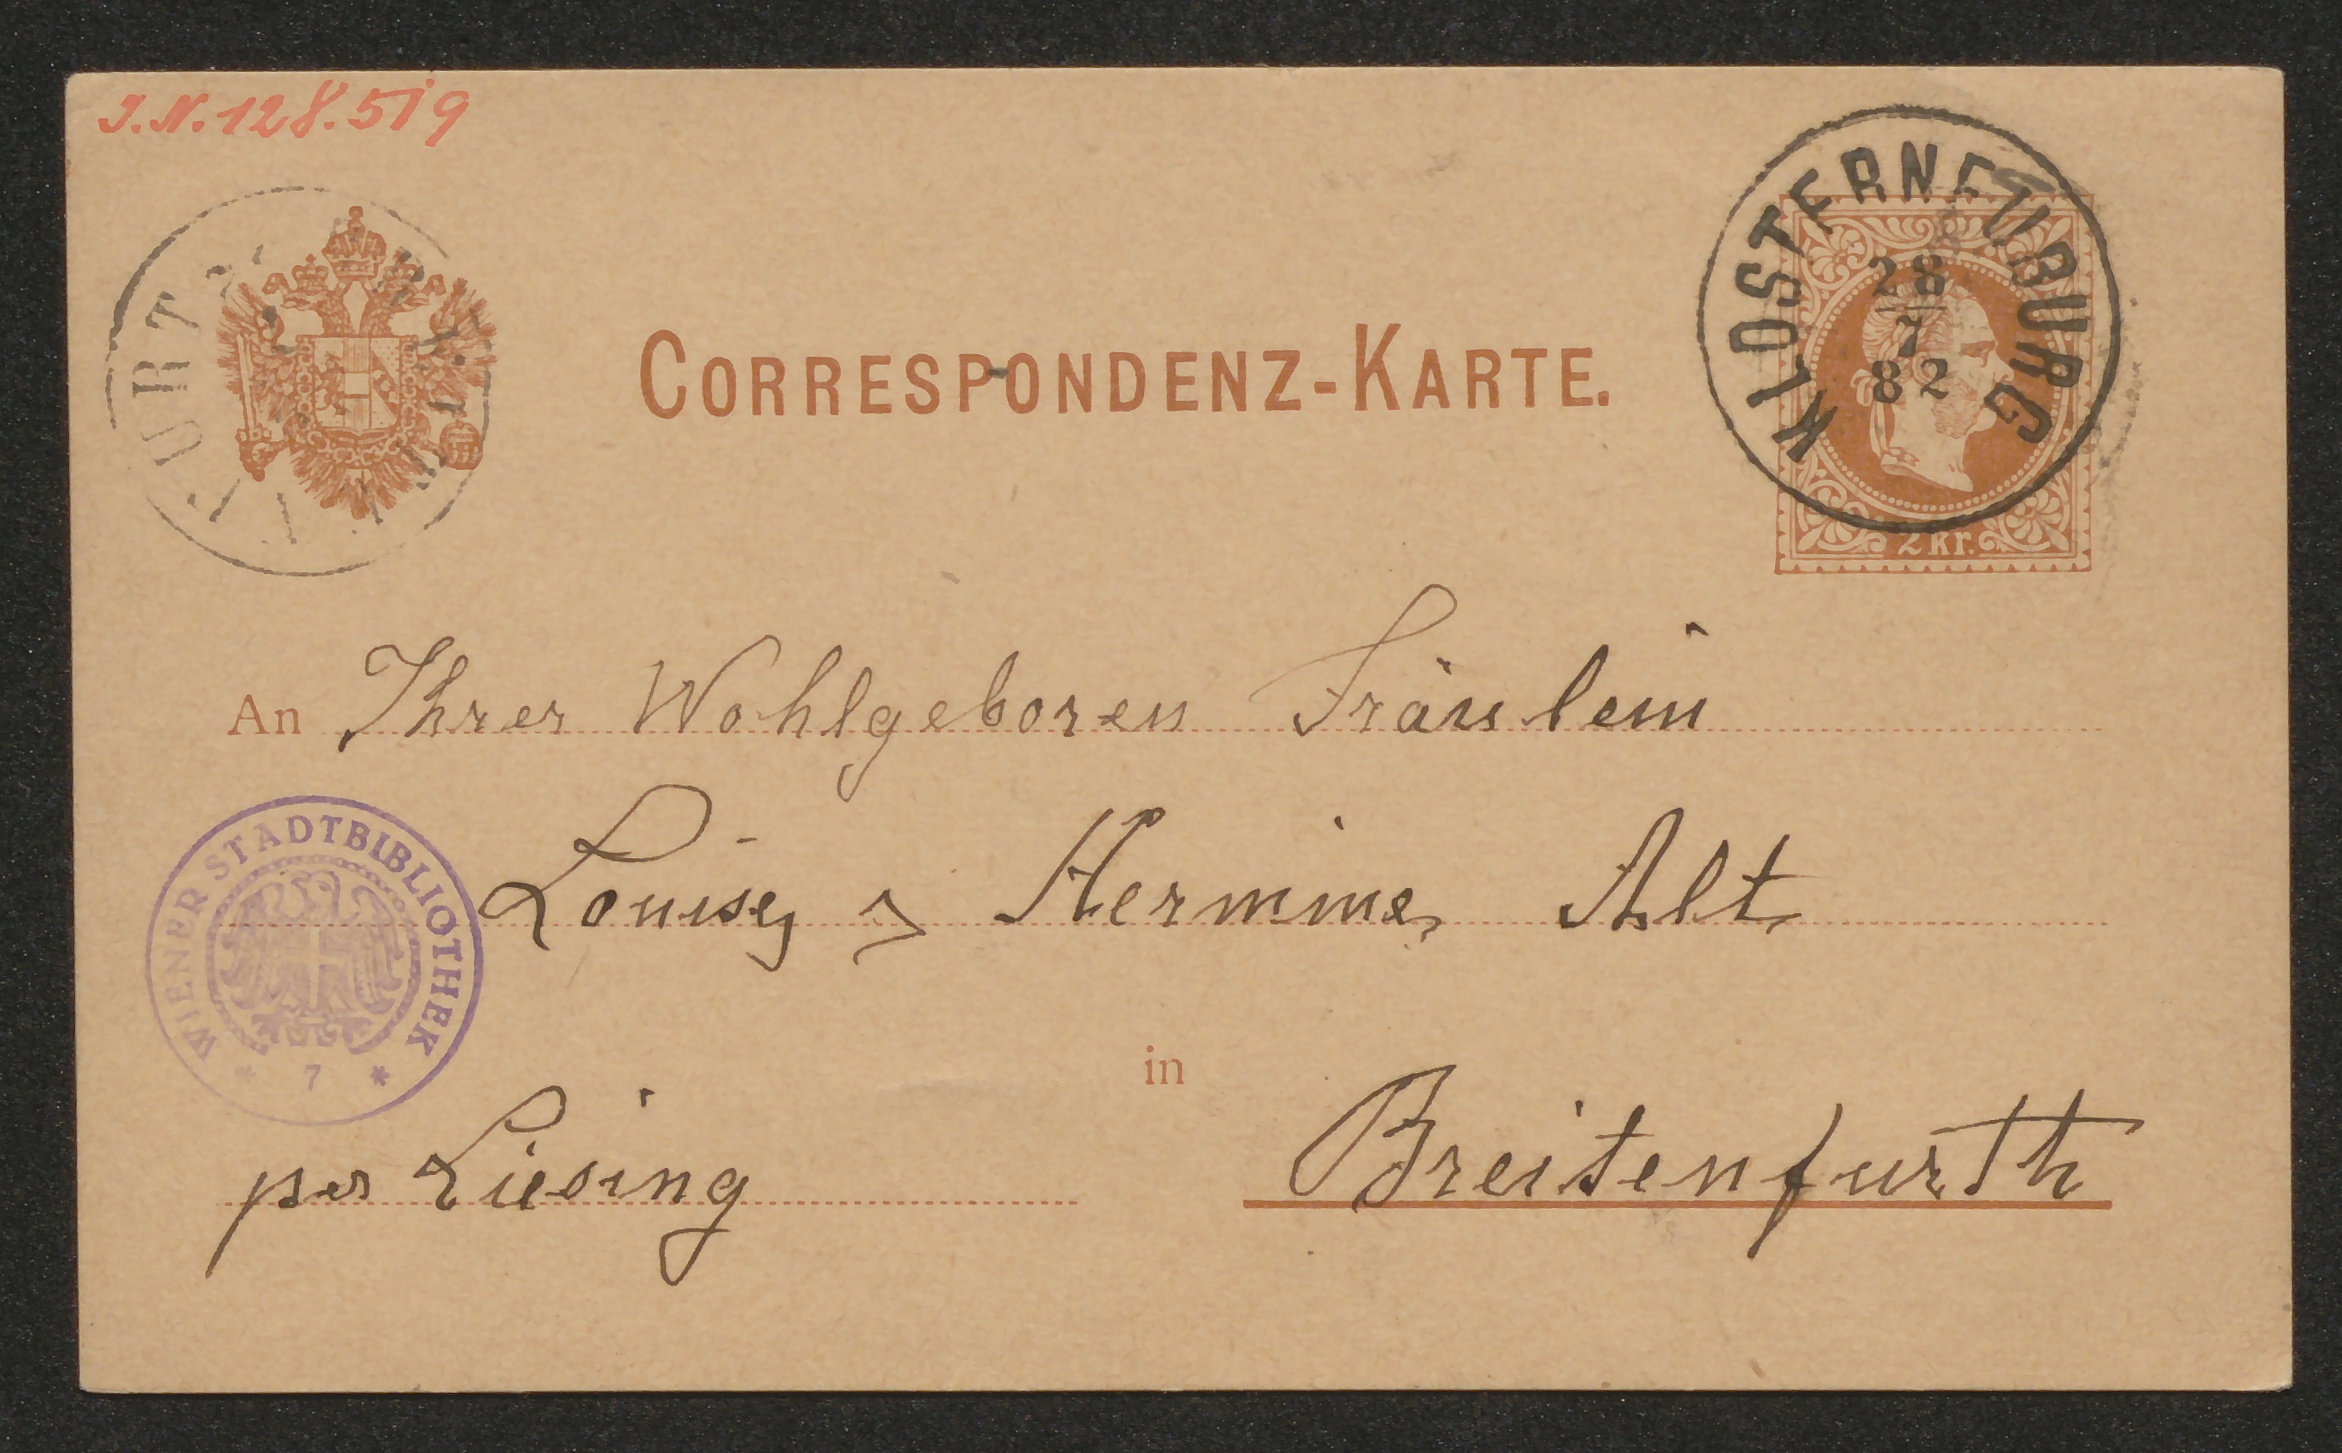 J.N. 128.519
CORRESPONDENZ-KARTE.
KLOSTERNEUBURG
28
7
82
2 kr.
An Ihrer Wohlgeboren Fräulein
Louise & Hermine Alt
WIENER STADTBIBLIOTHEK
* 7 *
in
per Liesing Breitenfurth